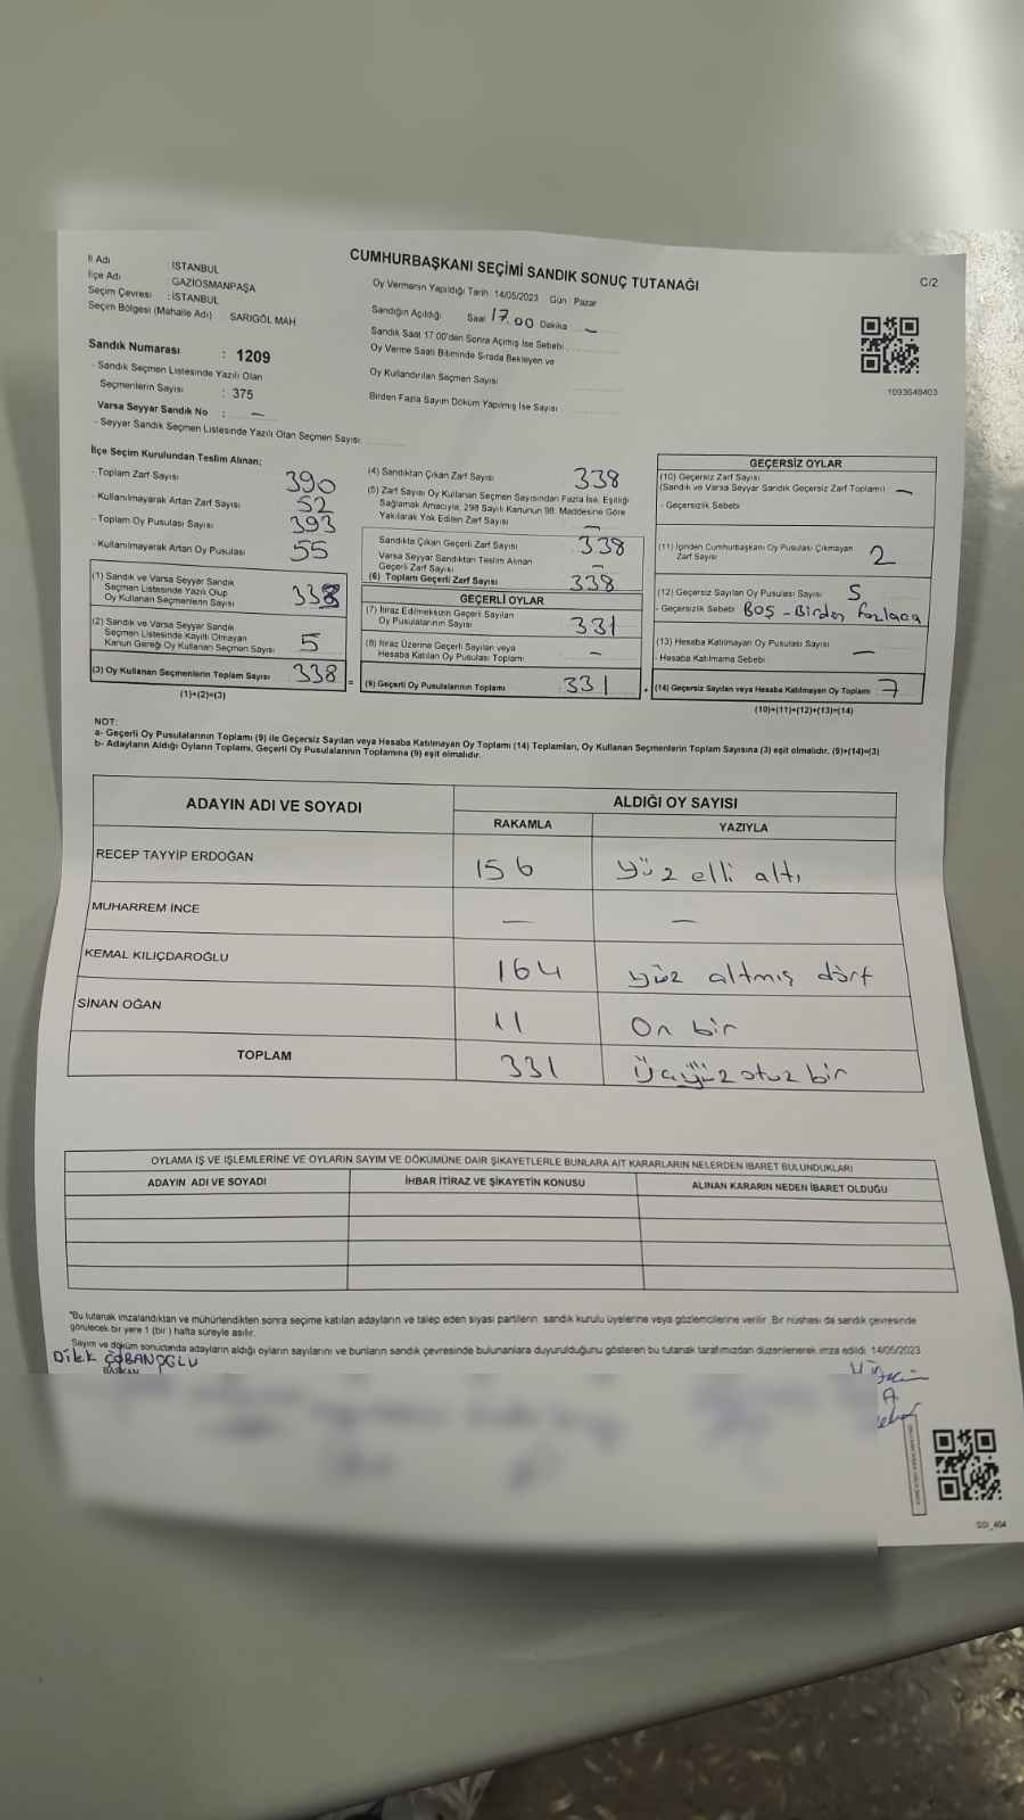 CUMHURBAŞKANI SEÇİMİ SANDIK SONUÇ TUTANAĞI
C/2
İl Adı İSTANBUL
İlçe Adı GAZİOSMANPAŞA
Seçim Çevresi : İSTANBUL
Seçim Bölgesi (Mahalle Adı) SARIGÖL MAH
Oy Vermenin Yapıldığı Tarih 14/05/2023 Gün Pazar
Sandığın Açıldığı Saat 17.00 Dakika —
Sandık Saat 17.00'den Sonra Açılmış İse Sebebi
Oy Verme Saati Bitiminde Sırada Bekleyen ve
Oy Kullandırılan Seçmen Sayısı
Birden Fazla Sayım Döküm Yapılmış İse Sayısı
1093649403
Sandık Numarası : 1209
- Sandık Seçmen Listesinde Yazılı Olan
Seçmenlerin Sayısı : 375
Varsa Seyyar Sandık No : —
- Seyyar Sandık Seçmen Listesinde Yazılı Olan Seçmen Sayısı:
İlçe Seçim Kurulundan Teslim Alınan;
- Toplam Zarf Sayısı 390
- Kullanılmayarak Artan Zarf Sayısı 52
- Toplam Oy Pusulası Sayısı 393
- Kullanılmayarak Artan Oy Pusulası 55
(1) Sandık ve Varsa Seyyar Sandık
Seçmen Listesinde Yazılı Olup
Oy Kullanan Seçmenlerin Sayısı
(2) Sandık ve Varsa Seyyar Sandık
Seçmen Listesinde Kayıtlı Olmayan
Kanun Gereği Oy Kullanan Seçmen Sayısı 5
(3) Oy Kullanan Seçmenlerin Toplam Sayısı 338
(1)+(2)=(3)
(4) Sandıktan Çıkan Zarf Sayısı 338
(5) Zarf Sayısı Oy Kullanan Seçmen Sayısından Fazla İse, Eşitliği
Sağlamak Amacıyla, 298 Sayılı Kanunun 98. Maddesine Göre
Yakılarak Yok Edilen Zarf Sayısı —
Sandıkta Çıkan Geçerli Zarf Sayısı 338
Varsa Seyyar Sandıktan Teslim Alınan
Geçerli Zarf Sayısı —
(6) Toplam Geçerli Zarf Sayısı 338
GEÇERLİ OYLAR
(7) İtiraz Edilmeksizin Geçerli Sayılan
Oy Pusulalarının Sayısı 331
(8) İtiraz Üzerine Geçerli Sayılan veya
Hesaba Katılan Oy Pusulası Toplamı —
= (9) Geçerli Oy Pusulalarının Toplamı 331
GEÇERSİZ OYLAR
(10) Geçersiz Zarf Sayısı
(Sandık ve Varsa Seyyar Sandık Geçersiz Zarf Toplamı) —
- Geçersizlik Sebebi
(11) İçinden Cumhurbaşkanı Oy Pusulası Çıkmayan
Zarf Sayısı 2
(12) Geçersiz Sayılan Oy Pusulası Sayısı 5
- Geçersizlik Sebebi BOŞ - Birden fazlaca
(13) Hesaba Katılmayan Oy Pusulası Sayısı —
- Hesaba Katılmama Sebebi
+ (14) Geçersiz Sayılan veya Hesaba Katılmayan Oy Toplamı 7
(10)+(11)+(12)+(13)=(14)
NOT:
a- Geçerli Oy Pusulalarının Toplamı (9) ile Geçersiz Sayılan veya Hesaba Katılmayan Oy Toplamı (14) Toplamları, Oy Kullanan Seçmenlerin Toplam Sayısına (3) eşit olmalıdır. (9)+(14)=(3)
b- Adayların Aldığı Oyların Toplamı, Geçerli Oy Pusulalarının Toplamına (9) eşit olmalıdır.
ADAYIN ADI VE SOYADI ALDIĞI OY SAYISI
RAKAMLA YAZIYLA
RECEP TAYYİP ERDOĞAN 156 yüz elli altı
MUHARREM İNCE — —
KEMAL KILIÇDAROĞLU 164 yüz altmış dört
SİNAN OĞAN 11 On bir
TOPLAM 331 Üçyüz otuz bir
OYLAMA İŞ VE İŞLEMLERİNE VE OYLARIN SAYIM VE DÖKÜMÜNE DAİR ŞİKAYETLERLE BUNLARA AİT KARARLARIN NELERDEN İBARET BULUNDUKLARI
ADAYIN ADI VE SOYADI İHBAR İTİRAZ VE ŞİKAYETİN KONUSU ALINAN KARARIN NEDEN İBARET OLDUĞU
"Bu tutanak imzalandıktan ve mühürlendikten sonra seçime katılan adayların ve talep eden siyasi partilerin sandık kurulu üyelerine veya gözlemcilerine verilir. Bir nüshası da sandık çevresinde
görülecek bir yere 1 (bir) hafta süreyle asılır.
Sayım ve döküm sonucunda adayların aldığı oyların sayılarını ve bunların sandık çevresinde bulunanlara duyurulduğunu gösteren bu tutanak tarafımızdan düzenlenerek imza edildi. 14/05/2023
Dilek ÇOBANOĞLU
BAŞKAN